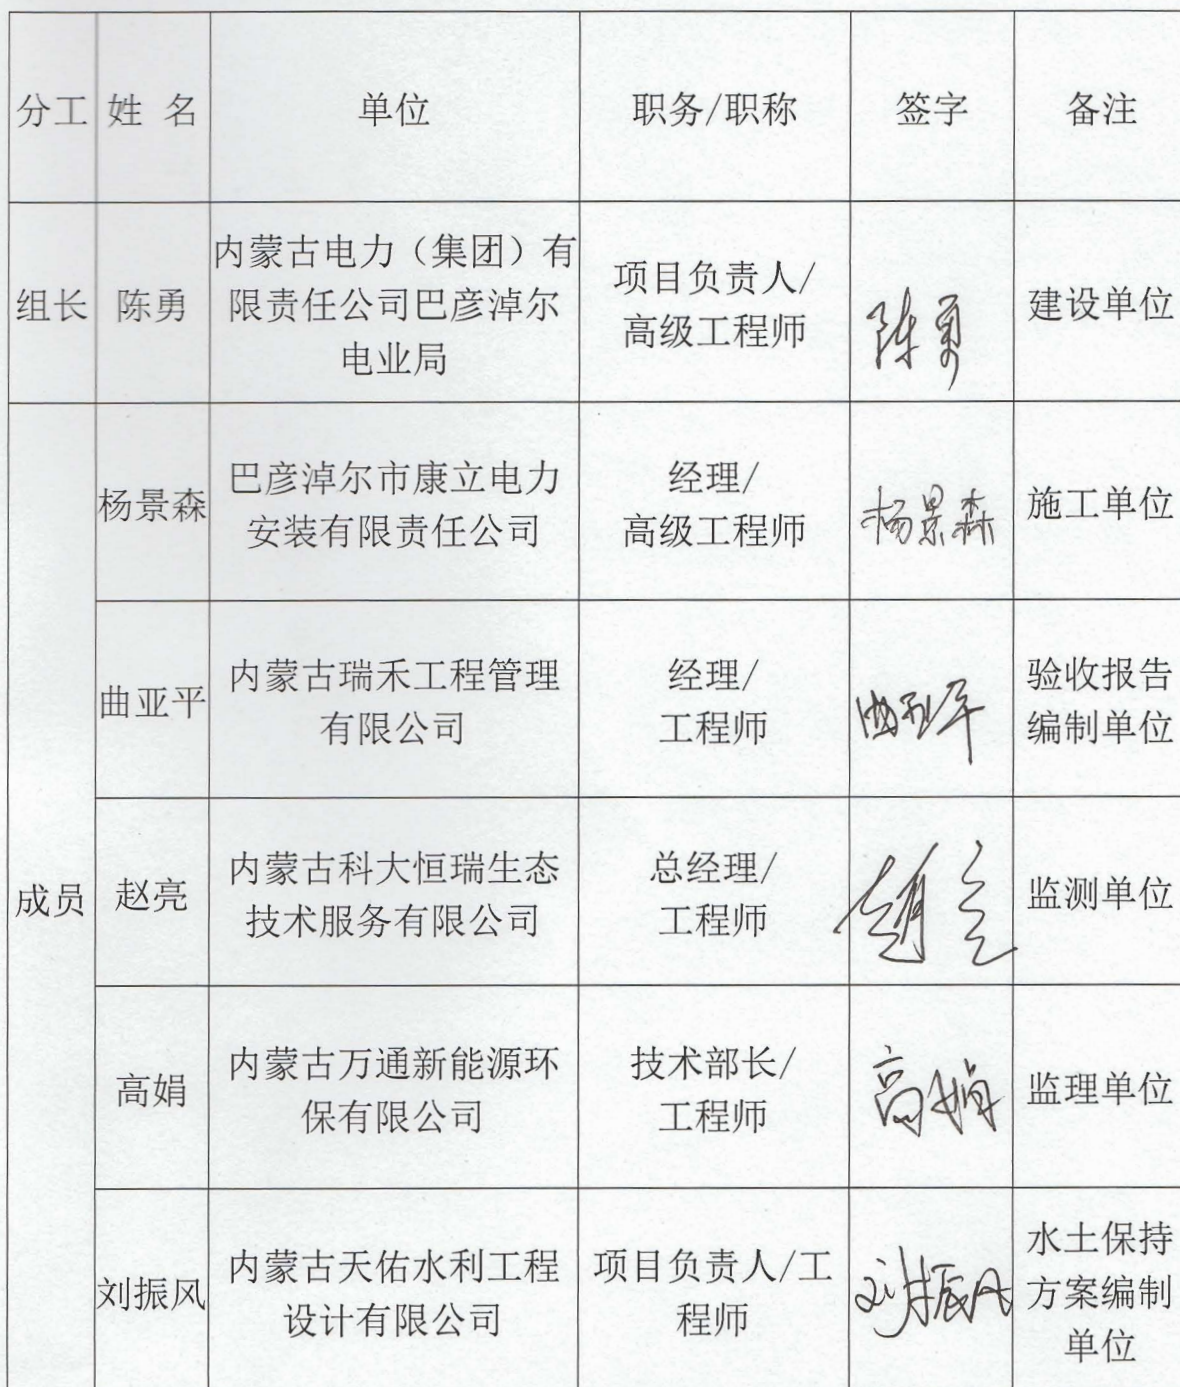 分工 姓 名 单位 职务/职称 签字 备注
组长 陈勇
内蒙古电力（集团）有
限责任公司巴彦淖尔
电业局
项目负责人/
高级工程师
陈勇
建设单位
成员
杨景森
巴彦淖尔市康立电力
安装有限责任公司
经理/
高级工程师
杨景森
施工单位
曲亚平
内蒙古瑞禾工程管理
有限公司
经理/
工程师
曲亚平
验收报告
编制单位
赵亮
内蒙古科大恒瑞生态
技术服务有限公司
总经理/
工程师
赵亮
监测单位
高娟
内蒙古万通新能源环
保有限公司
技术部长/
工程师
高娟
监理单位
刘振风
内蒙古天佑水利工程
设计有限公司
项目负责人/工
程师
刘振风
水土保持
方案编制
单位